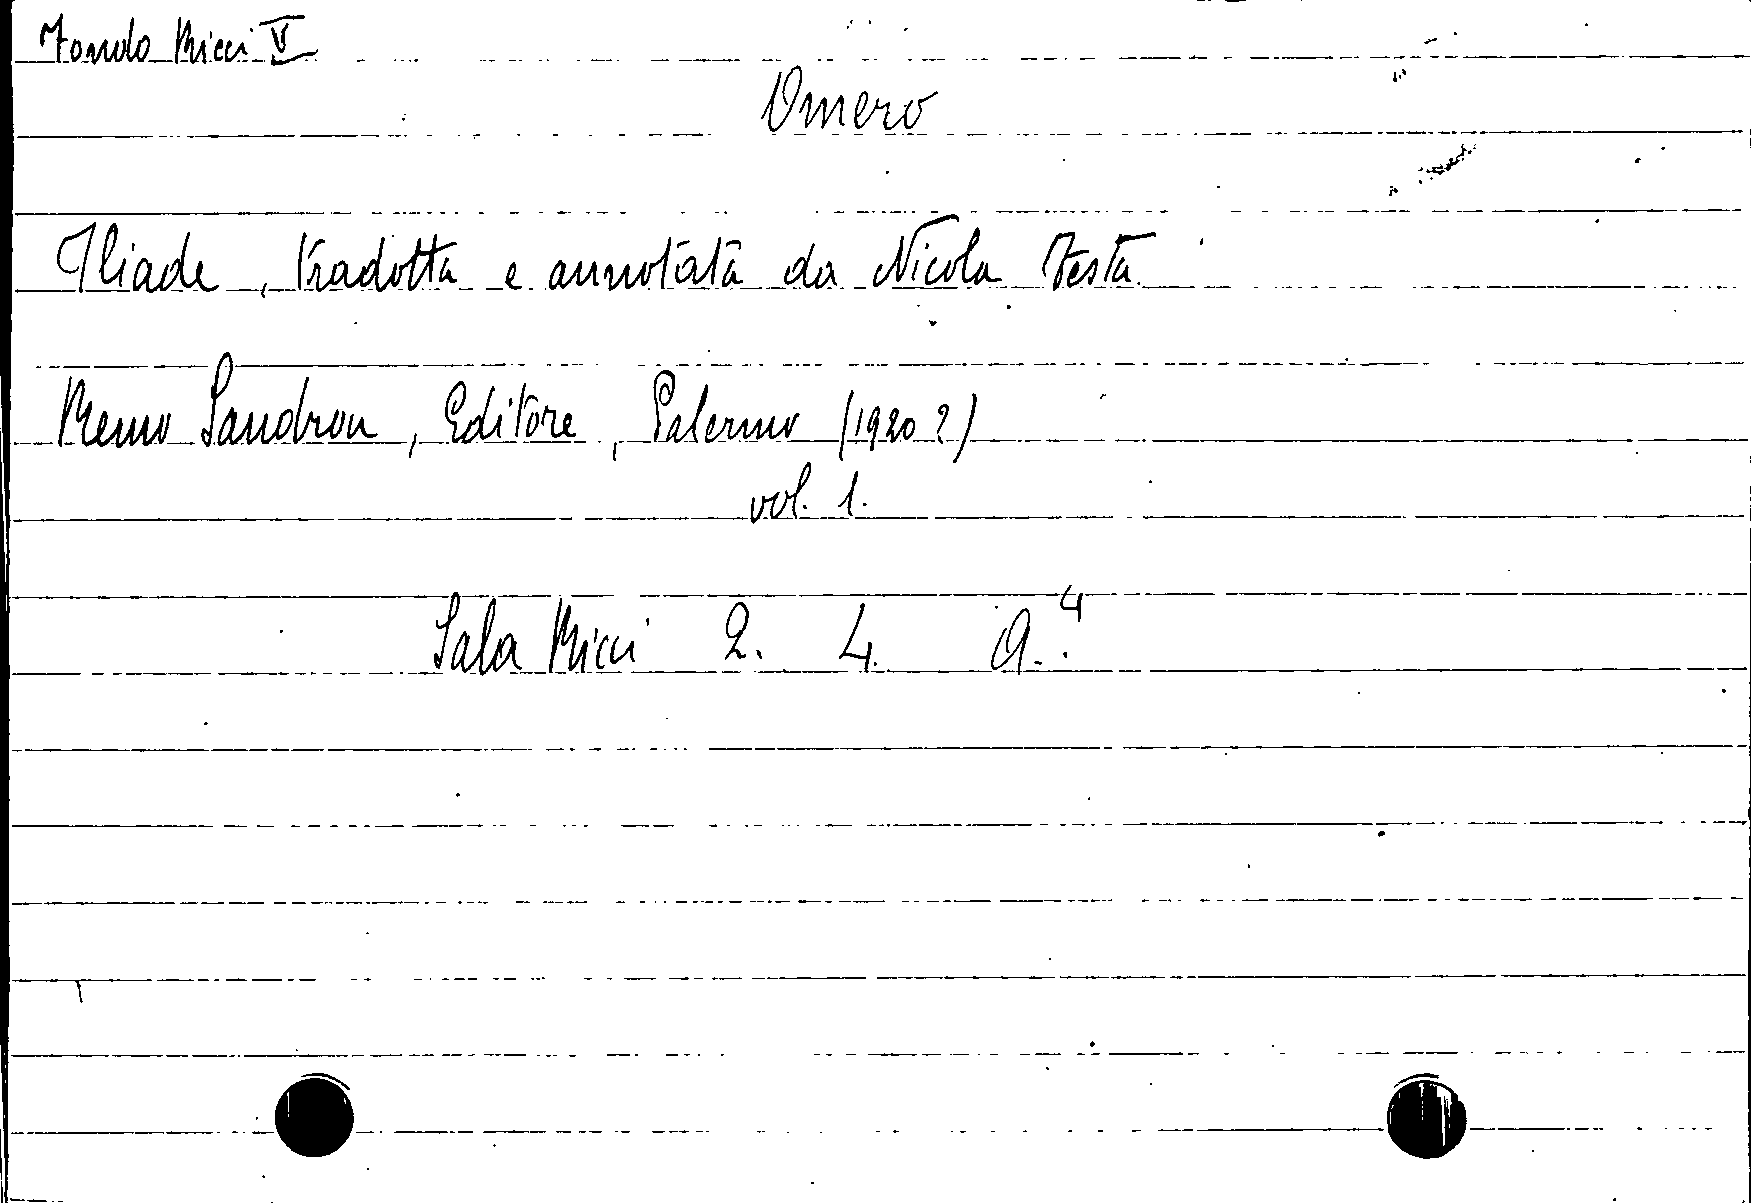 Fondo Ricci V
Omero
Iliade, tradotta e annotata da Nicola Festa
Remo Sandron, Editore, Palermo (1920?)
vol. 1.
Sala Ricci 2. 4. a.4